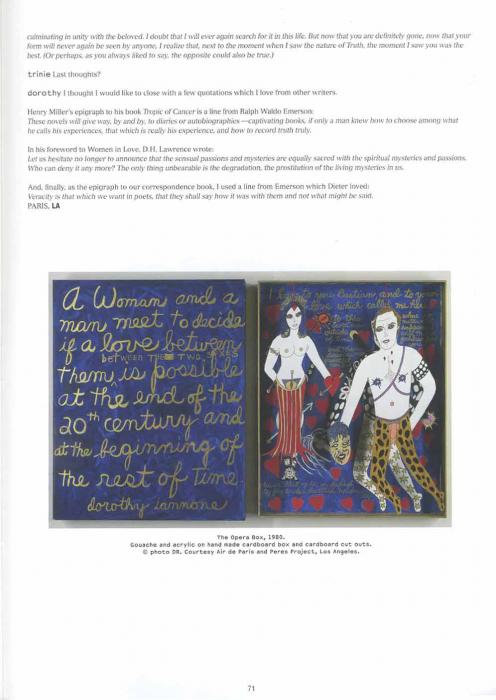 culminating in unity with the beloved. I doubt that I will ever again search for it in this life. But now that you are definitely gone, now that your
form will never again be seen by anyone, I realize that, next to the moment when I saw the nature of Truth, the moment I saw you was the
best. (Or perhaps, as you always liked to say, the opposite could also be true.)
trinie Last thoughts?
dorothy I thought I would like to close with a few quotations which I love from other writers.
Henry Miller's epigraph to his book Tropic of Cancer is a line from Ralph Waldo Emerson:
These novels will give way, by and by, to diaries or autobiographies—captivating books, if only a man knew how to choose among what
he calls his experiences, that which is really his experience, and how to record truth truly.
In his foreword to Women in Love, D.H. Lawrence wrote:
Let us hesitate no longer to announce that the sensual passions and mysteries are equally sacred with the spiritual mysteries and passions.
Who can deny it any more? The only thing unbearable is the degradation, the prostitution of the living mysteries in us.
And, finally, as the epigraph to our correspondence book, I used a line from Emerson which Dieter loved:
Veracity is that which we want in poets, that they shall say how it was with them and not what might be said.
PARIS, LA
A Woman and a
man meet to decide
if a love between
BETWEEN THE TWO SEXES
them is possible
at the end of the
20th century and
at the beginning of
the rest of Time
dorothy iannone
to you Bastian, and to your
love which calls me
The Opera Box, 1980.
Gouache and acrylic on hand made cardboard box and cardboard cut outs.
© photo DR. Courtesy Air de Paris and Peres Project, Los Angeles.
71